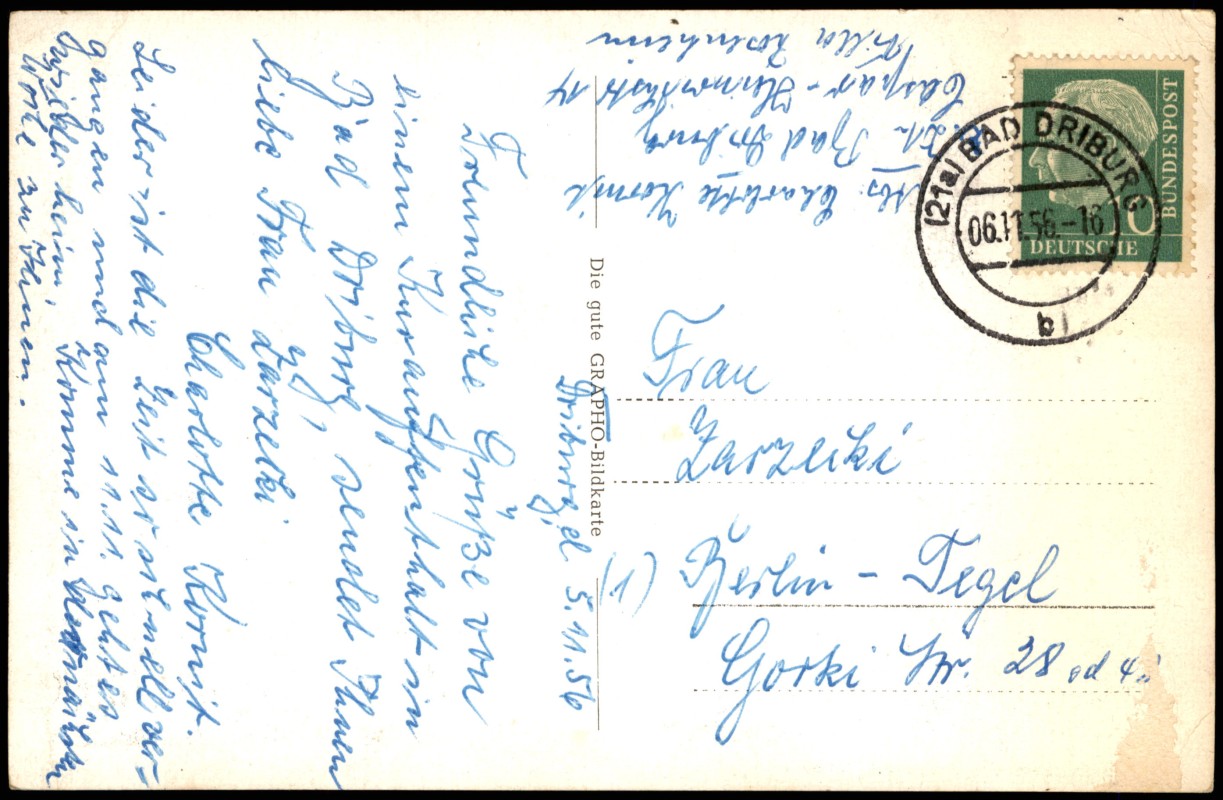 Driburg, d 5.11.56
Freundliche Grüße von
einem Kuraufenthalt in
Bad Driburg, sendet Ihnen
liebe Frau Zarzecki
Charlotte Kornit.
Leider ist die Zeit so schnell ver-
gangen und am 11.11. geht es
wieder heim. Komme in der nächsten
Woche zu Ihnen.
Abs. Charlotte Kornit
z. Zt. Bad Driburg
Caspar-Heinrichstr 14
Villa Rosenheim
Die gute GRAPHO-Bildkarte
(21a) BAD DRIBURG
06.11.56.-16
b
DEUTSCHE
BUNDESPOST
Frau
Zarzecki
(1) Berlin - Tegel
Gorki Str. 28 od